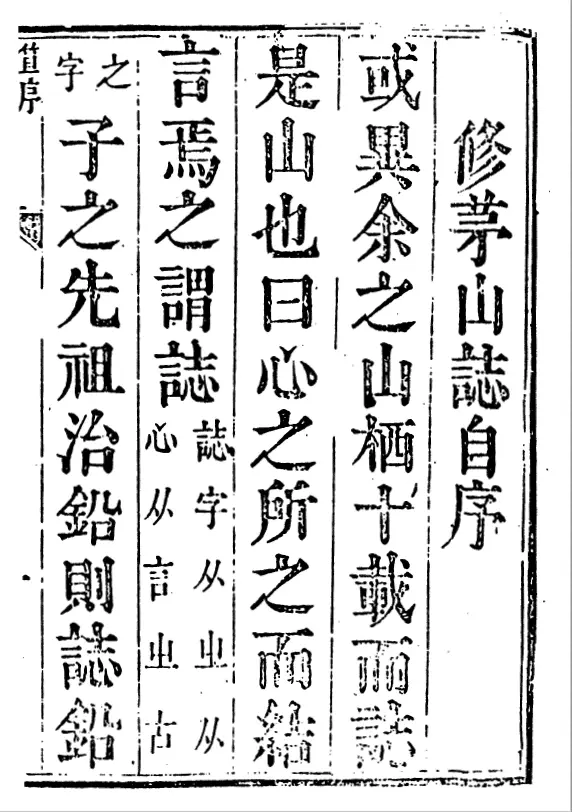 修茅山誌自序
或異余之山栖十載而誌
是山也曰心之所之而結
言焉之謂誌誌字从㞢从心从言㞢古
之字子之先祖治鉛則誌鉛
笪序